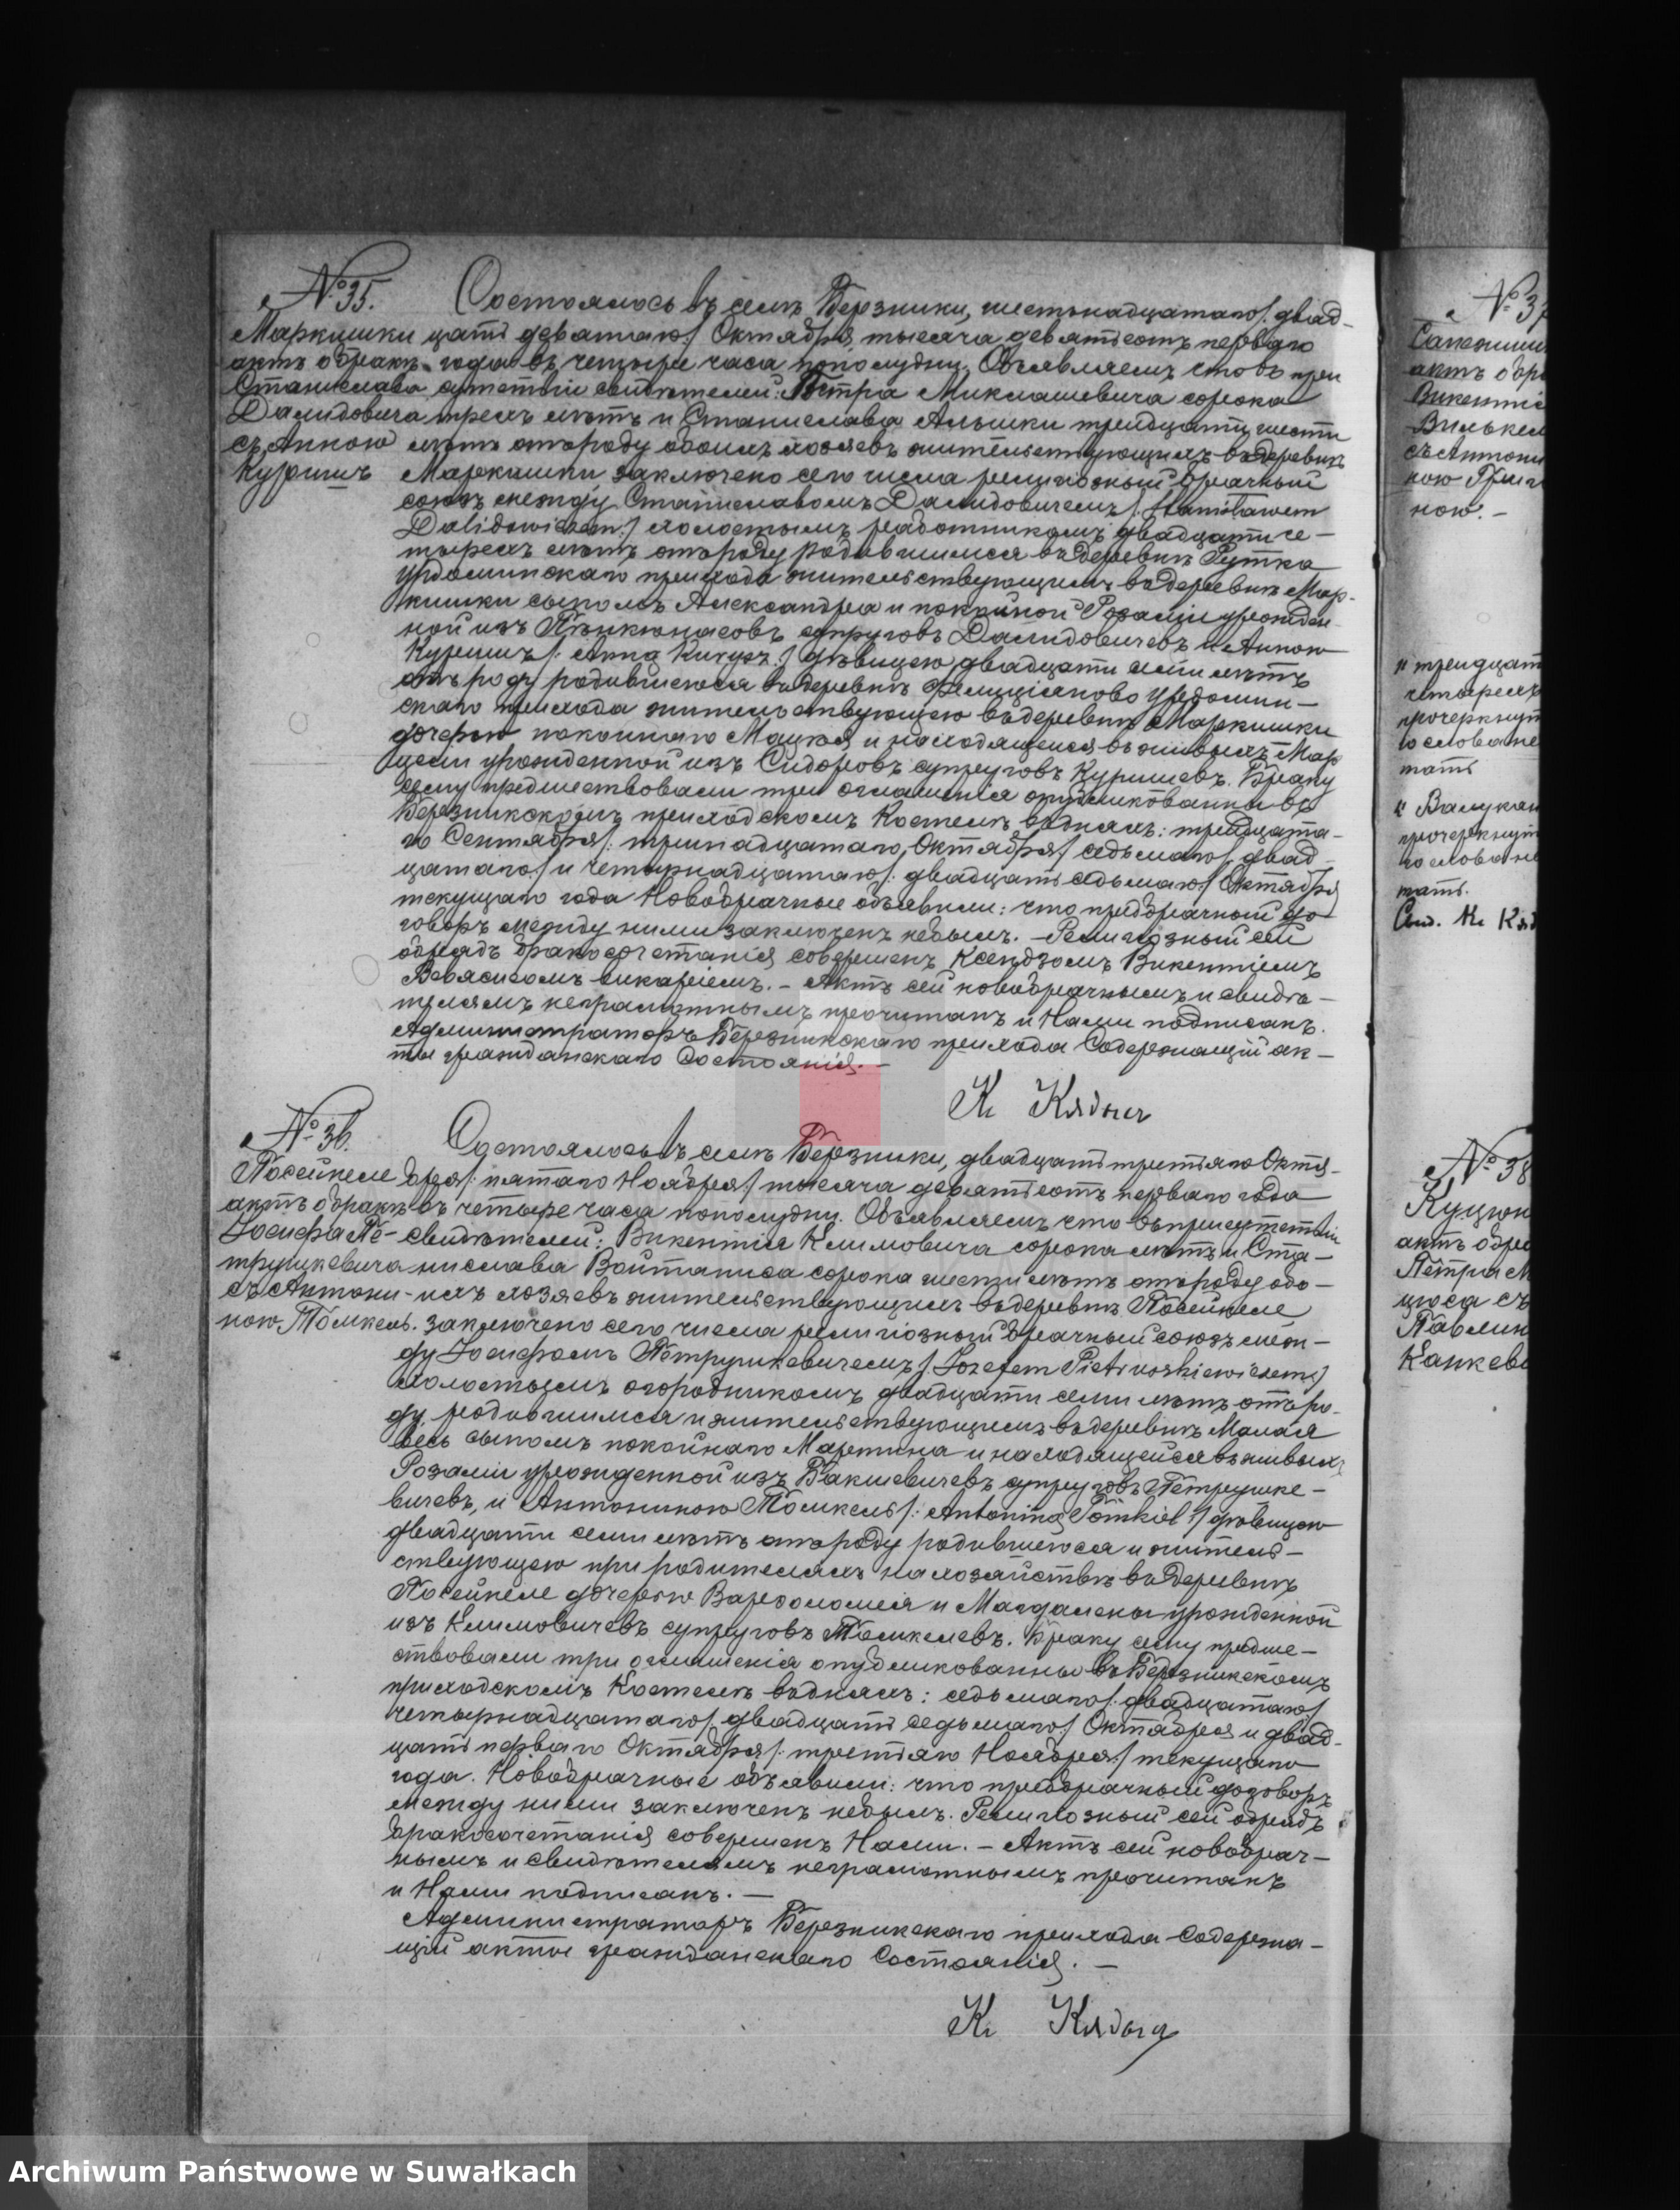 № 35.
Маркишки
актъ о бракѣ
Станислава
Далидовича
съ Анною
Куришъ
Состоялось въ селѣ Березники, шестьнадцатаго /: двад-
цать девятаго :/ Октября тысяча девятьсотъ перваго
года въ четыре часа пополудни. Объявляемъ что въ при
сутствіи свидѣтелей: Петра Миклашевича сорока
трехъ лѣтъ и Станислава Альшки тридцати шести
лѣтъ отъ роду обоихъ хозяевъ жительствующихъ въ деревнѣ
Маркишки заключено сего числа религіозный брачный
союзъ между Станиславомъ Далидовичемъ /: Stanisławem
Dalidowiczem :/ холостымъ работникомъ двадцати че-
тырехъ лѣтъ отъ роду родившимся въ деревнѣ Рутка
Урдоминскаго прихода жительствующимъ въ деревнѣ Мар-
кишки сыномъ Александра и покойной Розаліи урожден
ной изъ супруговъ Далидовичевъ и Анною
Куришъ /: Anną Kurysz :/ дѣвицею двадцати семи лѣтъ
отъ роду родившеюся въ деревнѣ Фелиціаново Урдомин-
скаго прихода жительствующею въ деревнѣ Маркишки
дочерью покойнаго Мацея и находящейся въ живыхъ Мар
цели урожденной изъ Сидоровъ супруговъ Куришевъ. Браку
сему предшествовали три оглашенія опубликованны въ
Березникскомъ приходскомъ Костелѣ въ дняхъ: тридцата-
го Сентября /: тринадцатаго Октября :/ седьмаго /: двад-
цатаго :/ и четырнадцатаго /: двадцать седьмаго :/ Октября
текущаго года Новобрачные объявили: что предбрачный до
говоръ между ними заключенъ небылъ. – Религіозный сей
обрядъ бракосочетанія совершенъ Ксендзомъ Викентіемъ
викаріемъ. – Актъ сей новобрачнымъ и свидѣ-
телямъ неграмотнымъ прочитанъ и Нами подписанъ.
Администраторъ Березникскаго прихода Содержащій ак-
ты гражданскаго Состоянія. –
К. Кядыс
№ 36.
Посейнеле
актъ о бракѣ
Іосифа Пе-
трушкевича
съ Антони-
ною Томкель.
Состоялось въ селѣ Березники, двадцать третьяго Октя-
бря /: пятаго Ноября :/ тысяча девятьсотъ перваго года
въ четыре часа пополудни. Объявляемъ что въ присутствіи
свидѣтелей: Викентія Климовича сорока лѣтъ и Ста-
нислава Войтаниса сорока шести лѣтъ отъ роду обо-
ихъ хозяевъ жительствующихъ въ деревнѣ Посейнеле
заключено сего числа религіозный брачный союзъ меж-
ду Іосифомъ Петрушкевичемъ /: Jozefem Pietruszkiewiczem :/
холостымъ огородникомъ двадцати семи лѣтъ отъ ро-
ду родившимся и жительствующимъ въ деревнѣ Малая
весь сыномъ покойнаго Мартина и находящейся въ живыхъ
Розаліи урожденной изъ Бакшевичевъ супруговъ Петрушке-
вичевъ, и Антониною Томкель /: Antoniną Tomkiel :/ дѣвицею
двадцати семи лѣтъ отъ роду родившеюся и житель-
ствующею при родителяхъ на хозяйствѣ въ деревнѣ
Посейнеле дочерью Варѳоломея и Магдалены урожденной
изъ Климовичевъ супруговъ Томкелевъ. Браку сему предше-
ствовали три оглашенія опубликованны въ Березникскомъ
приходскомъ Костелѣ въ дняхъ: седьмаго /: двадцатаго :/
четырнадцатаго /: двадцать седьмаго :/ Октября и двад-
цать перваго Октября /: третьяго Ноября :/ текущаго
года. Новобрачные объявили: что предбрачный договоръ
между ними заключенъ небылъ. Религіозный сей обрядъ
бракосочетанія совершенъ Нами. – Актъ сей новобрач-
нымъ и свидѣтелямъ неграмотнымъ прочитанъ
и Нами подписанъ. –
Администраторъ Березникскаго прихода Содержа-
щій акты гражданскаго Состоянія. –
К. Кядыс
№ 37
актъ о бра
Викентія
съ Антони
ною
ною. –
тридцат
четырехъ
прочеркнут
го слова не
тать
прочеркнут
го слова не
тать.
№ 38
актъ о бра
Петра М
цюса съ
Павлин
Канкеви
Archiwum Państwowe w Suwałkach